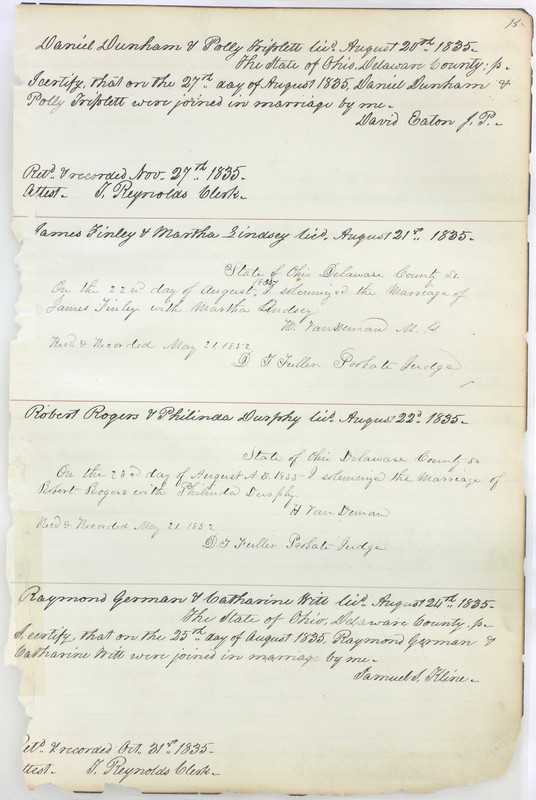 15-
Daniel Dunham & Polly Triplett lic.d August 20th 1835.
The State of Ohio, Delaware County; ss.
I certify, that on the 27th day of August 1835, Daniel Dunham &
Polly Triplett were joined in marriage by me.
David Eaton J. P.
Retd & recorded Nov. 27th 1835.
Attest. T. Reynolds Clerk.
James Finley & Martha Lindsey lic.d August 21st 1835.
State of Ohio Delaware County ss
On the 22nd day of August, 1835 I solemnized the Marriage of
James Finley with Martha Lindsey
W. VanDeman M. G
Recd & Recorded May 21. 1852
D T Fuller Probate Judge
Robert Rogers & Philinda Durphy lic.d August 22d 1835.
State of Ohio Delaware County ss
On the 23rd day of August A D. 1835 I solemnized the Marriage of
Robert Rogers with Philinda Durphy
H VanDeman
Recd & Recorded May 21. 1852
D. T Fuller Probate Judge
Raymond German & Catharine Witt lic.d August 24th 1835.
The State of Ohio, Delaware County, ss.
I certify, that on the 25th day of August 1835, Raymond German &
Catharine Witt were joined in marriage by me.
Samuel S. Kline.
Retd & recorded Oct. 31st 1835.
Attest. T. Reynolds Clerk.